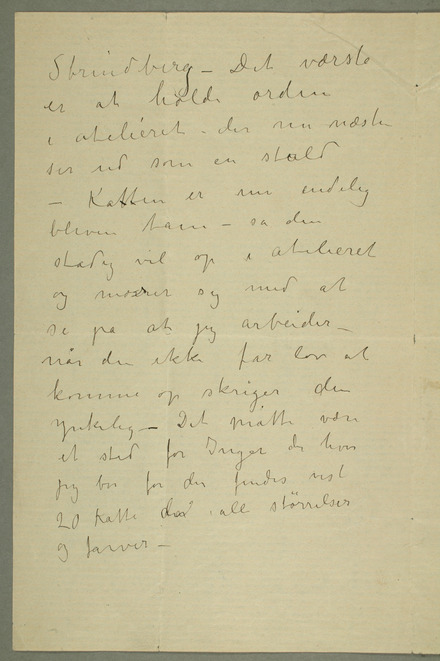 Strindberg – Det værste
er at holde orden
i atelieret – der nu næsten
ser ud som en stald
– Katten er nu endelig
bleven tam – så den
stadig vil op i atelieret
og morer sig med at
se på at jeg arbeider –
når den ikke får lov at
komme op skriger den
ynkelig – Det måtte være
et sted for Inger der hvor
jeg bor for der findes vist
20 Katte der i alle størrelser
og farver –